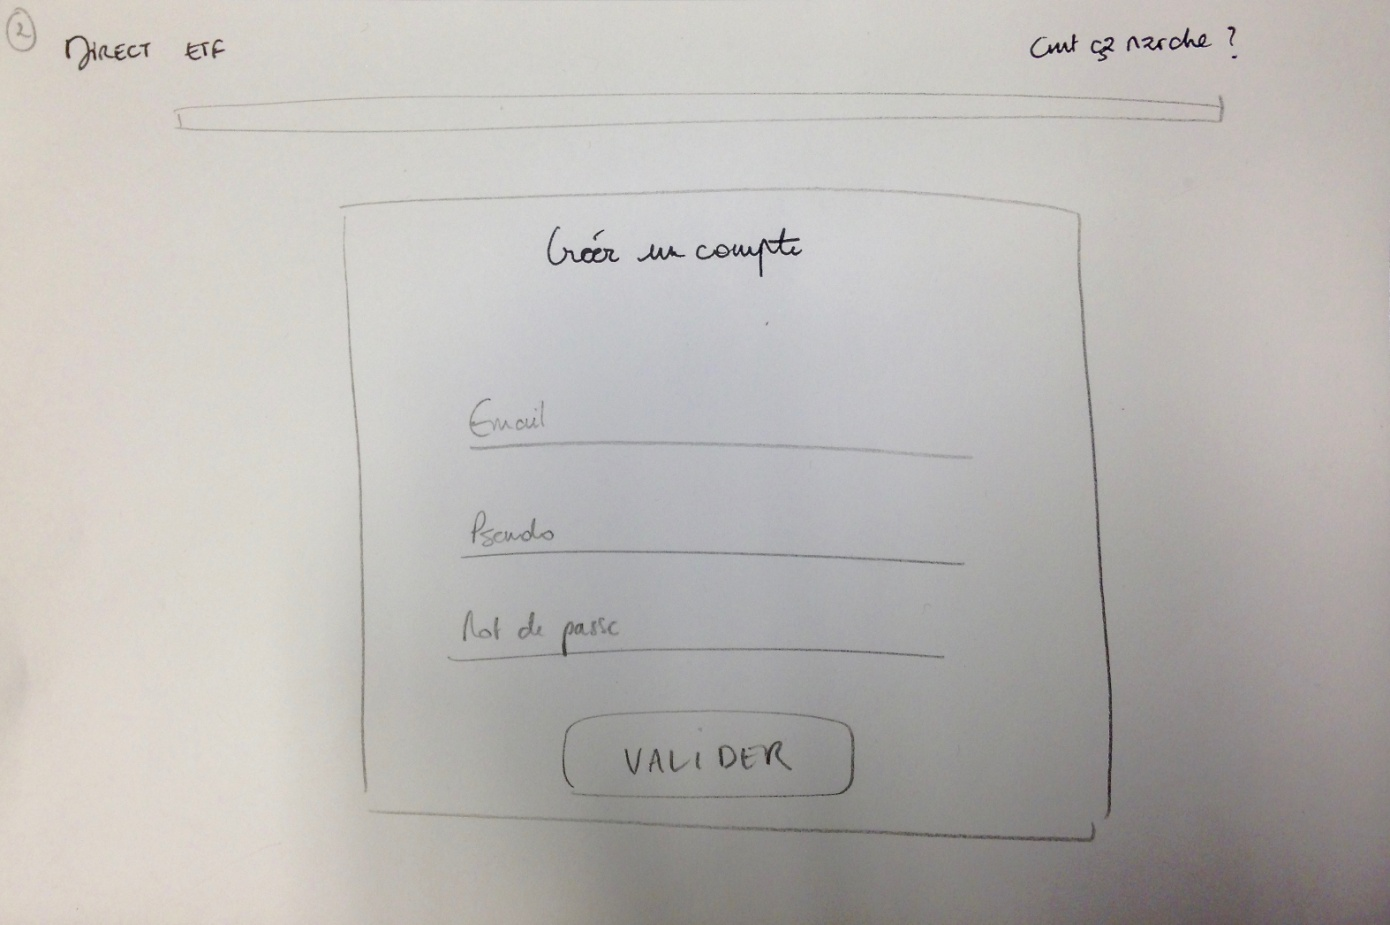 2
DIRECT ETF
Cmt ça marche ?
Créer un compte
Email
Pseudo
Mot de passe
VALIDER